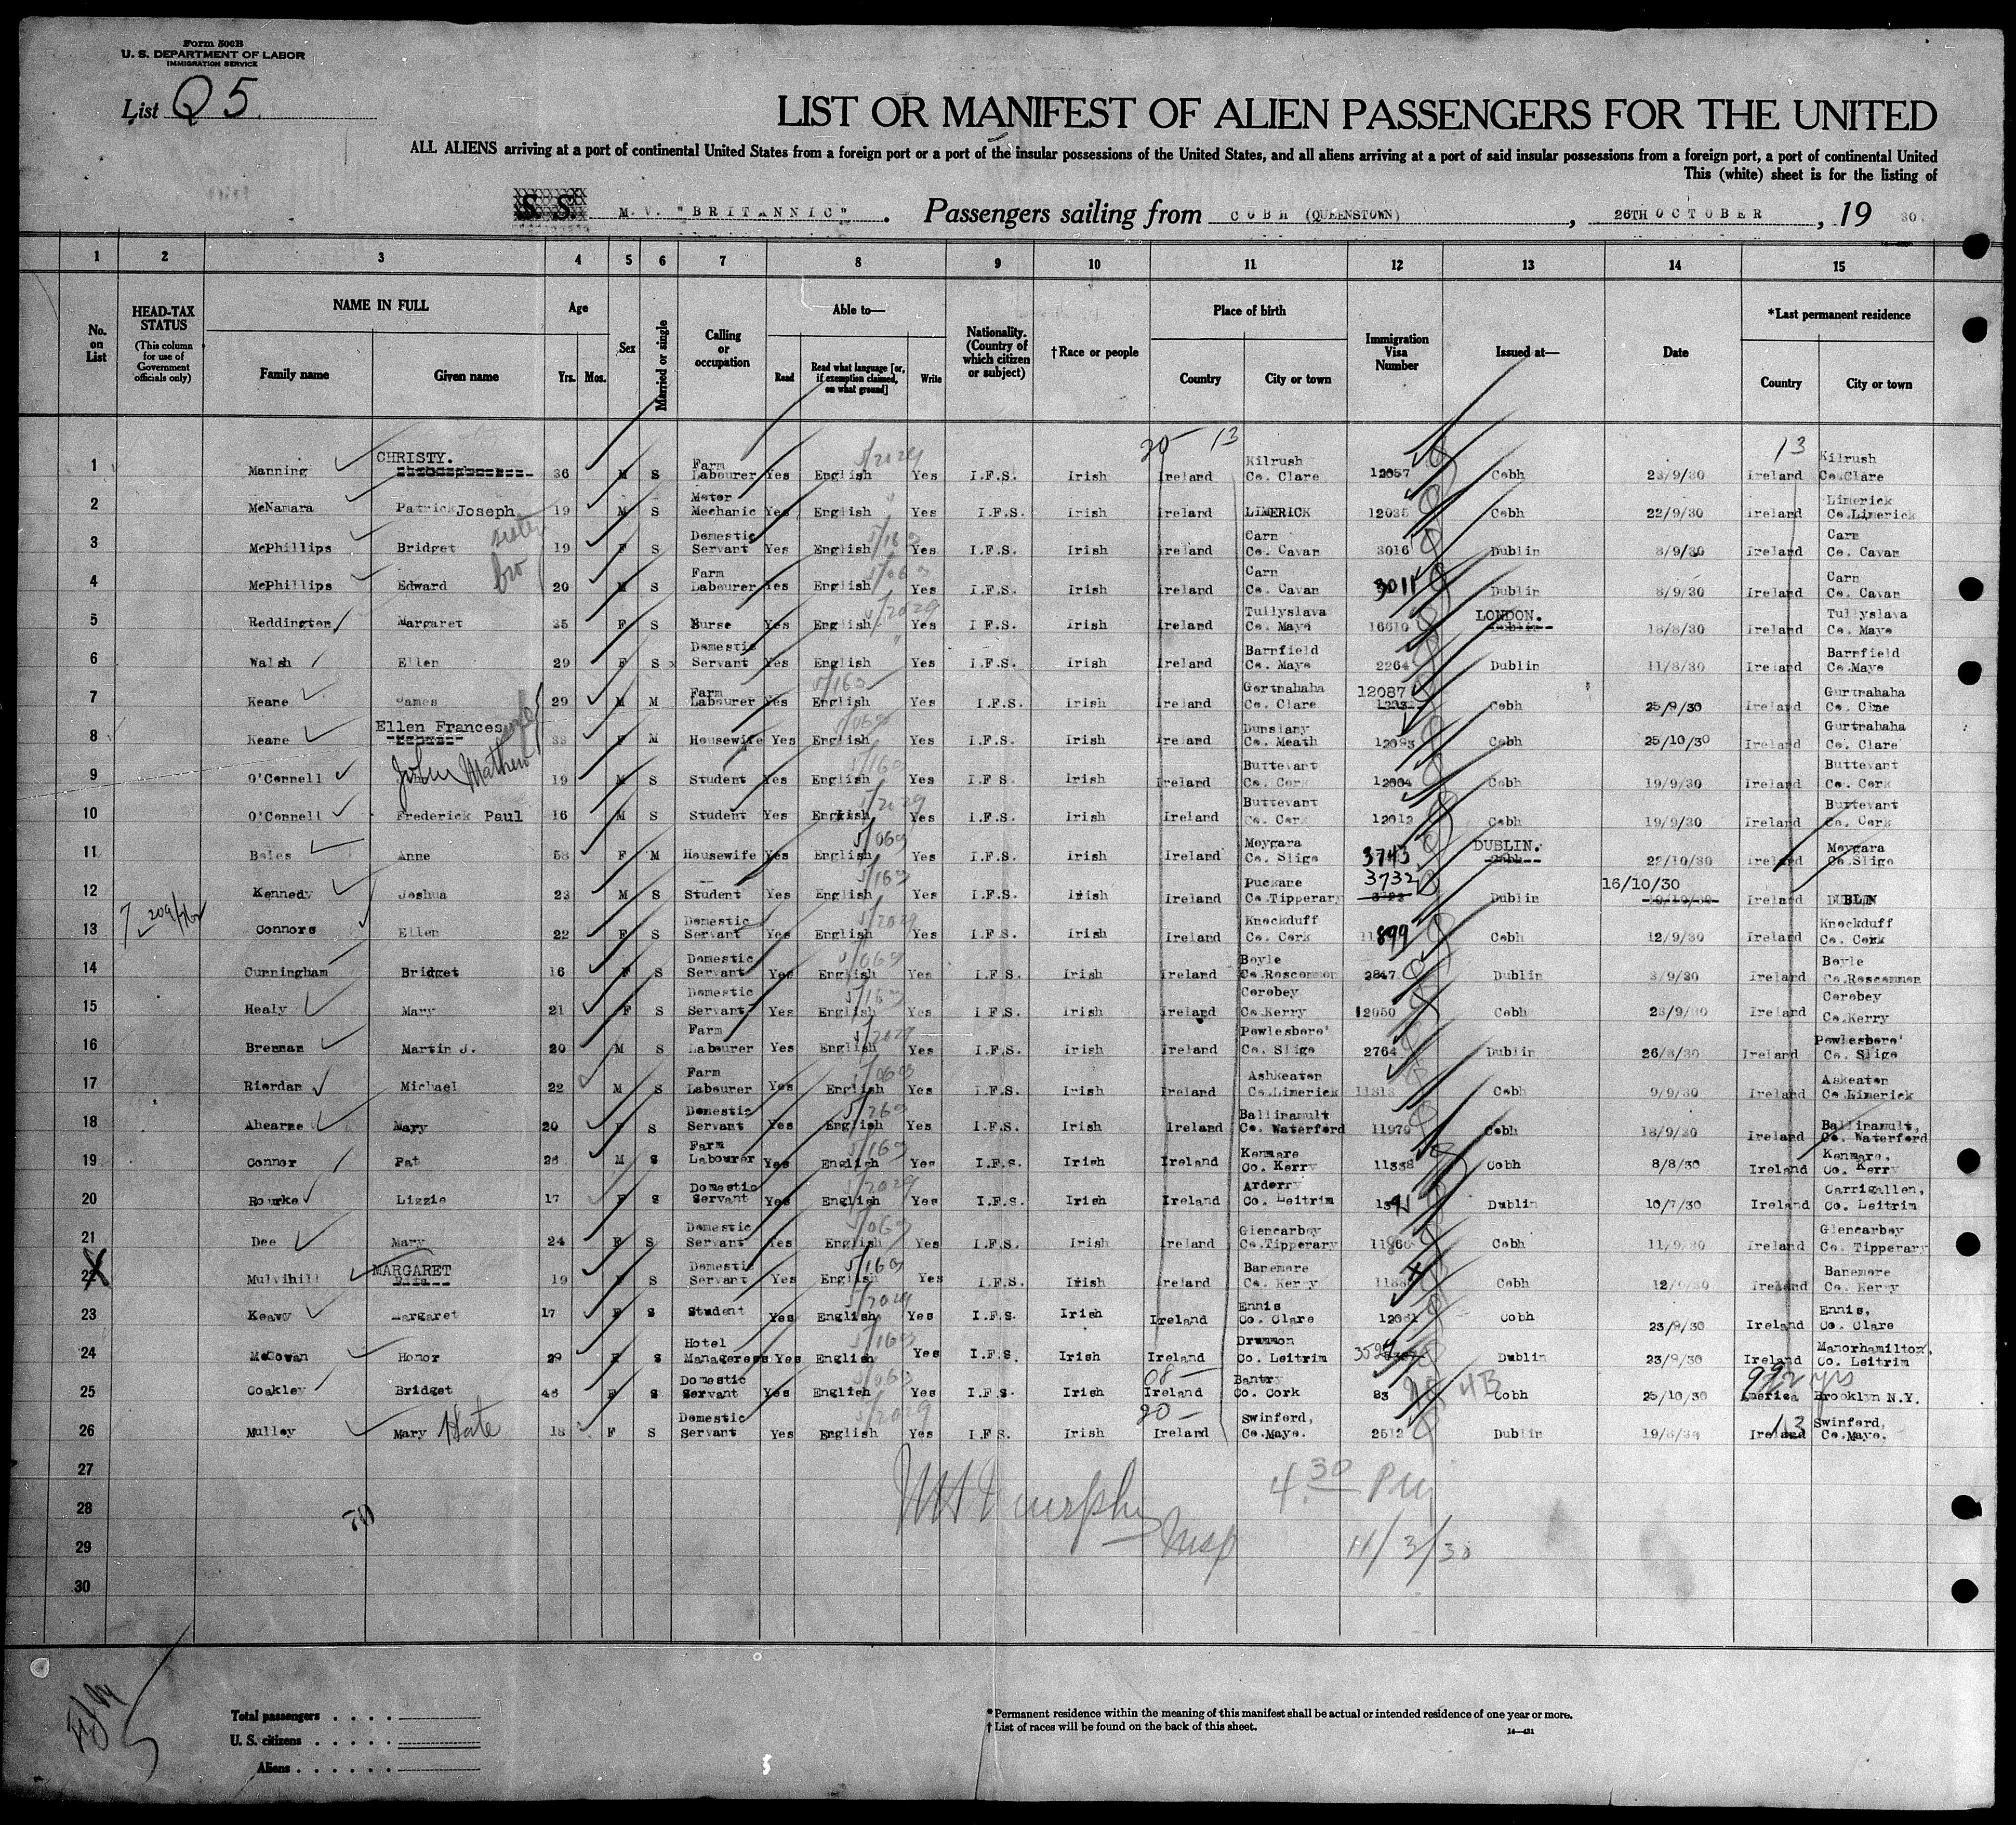 Form 500B
U. S. DEPARTMENT OF LABOR
IMMIGRATION SERVICE
List Q5
LIST OR MANIFEST OF ALIEN PASSENGERS FOR THE UNITED
ALL ALIENS arriving at a port of continental United States from a foreign port or a port of the insular possessions of the United States, and all aliens arriving at a port of said insular possessions from a foreign port, a port of continental United
This (white) sheet is for the listing of
S. S. M. V. "BRITANNIC". Passengers sailing from COBH (QUEENSTOWN), 26TH OCTOBER, 19 30.
1 2 3 4 5 6 7 8 9 10 11 12 13 14 15
No. on List
HEAD-TAX STATUS (This column for use of Government officials only)
NAME IN FULL Family name Given name
Age Yrs. Mos.
Sex
Married or single
Calling or occupation
Able to— Read Read what language [or, if exemption claimed, on what ground] Write
Nationality. (Country of which citizen or subject)
†Race or people
Place of birth Country City or town
Immigration Visa Number
Issued at—
Date
*Last permanent residence Country City or town
20 13 13
1 Manning CHRISTY. 36 M S Farm Labourer Yes English Yes I.F.S. Irish Ireland Kilrush Co. Clare 12057 Cobh 23/9/30 Ireland Kilrush Co.Clare
2 McNamara Patrick Joseph 19 M S Motor Mechanic Yes English Yes I.F.S. Irish Ireland LIMERICK 12035 Cobh 22/9/30 Ireland Limerick Co.Limerick
3 McPhillips Bridget sister 19 F S Domestic Servant Yes English Yes I.F.S. Irish Ireland Carn Co. Cavan 3016 Dublin 8/9/30 Ireland Carn Co. Cavan
4 McPhillips Edward bro 20 M S Farm Labourer Yes English Yes I.F.S. Irish Ireland Carn Co. Cavan 3011 Dublin 8/9/30 Ireland Carn Co. Cavan
5 Reddington Margaret 35 F S Nurse Yes English Yes I.F.S. Irish Ireland Tullyslava Co. Mayo 16610 LONDON. Dublin 18/8/30 Ireland Tullyslava Co. Mayo
6 Walsh Ellen 29 F S Domestic Servant Yes English Yes I.F.S. Irish Ireland Barnfield Co. Mayo 2264 Dublin 11/8/30 Ireland Barnfield Co.Mayo
7 Keane James 29 M M Farm Labourer Yes English Yes I.F.S. Irish Ireland Gortnahaha Co. Clare 12087 Cobh 25/9/30 Ireland Gurtnahaha
8 Keane Ellen Frances wife 33 F M Housewife Yes English Yes I.F.S. Irish Ireland Dunslany Co. Meath 12093 Cobh 25/10/30 Ireland Gurtrahaha Co. Clare
9 O'Connell John Mathew 19 M S Student Yes English Yes I.F.S. Irish Ireland Buttevant Co. Cork 12004 Cobh 19/9/30 Ireland Buttevant Co. Cork
10 O'Connell Frederick Paul 16 M S Student Yes English Yes I.F.S. Irish Ireland Buttevant Co. Cork 12012 Cobh 19/9/30 Ireland Buttevant Co. Cork
11 Bales Anne 58 F M Housewife Yes English Yes I.F.S. Irish Ireland Moygara Co. Sligo 3743 DUBLIN. Cobh 22/10/30 Ireland Moygara Co.Sligo
12 Kennedy Joshua 23 M S Student Yes English Yes I.F.S. Irish Ireland Puckane Co.Tipperary 3732 Dublin 16/10/30 Ireland DUBLIN
13 Connors Ellen 22 F S Domestic Servant Yes English Yes I.F.S. Irish Ireland Knockduff Co. Cork 11899 Cobh 12/9/30 Ireland Knockduff Co. Cork
14 Cunningham Bridget 16 F S Domestic Servant Yes English Yes I.F.S. Irish Ireland Boyle Co.Roscommon 2847 Dublin 3/9/30 Ireland Boyle Co.Roscommon
15 Healy Mary 21 F S Domestic Servant Yes English Yes I.F.S. Irish Ireland Corobey Co.Kerry 12050 Cobh 23/9/30 Ireland Corobey Co.Kerry
16 Brennan Martin J. 20 M S Farm Labourer Yes English Yes I.F.S. Irish Ireland Powlesboro' Co. Sligo 2764 Dublin 26/8/30 Ireland Powlesboro' Co. Sligo
17 Riordan Michael 22 M S Farm Labourer Yes English Yes I.F.S. Irish Ireland Ashkeaton Co.Limerick 11813 Cobh 9/9/30 Ireland Askeaton Co Limerick
18 Ahearne Mary 20 F S Domestic Servant Yes English Yes I.F.S. Irish Ireland Ballinamult Co. Waterford 11970 Cobh 18/9/30 Ireland Ballinamult, Co. Waterford
19 Connor Pat 26 M S Farm Labourer Yes English Yes I.F.S. Irish Ireland Kenmare Co. Kerry 11338 Cobh 8/8/30 Ireland Kenmare, Co. Kerry
20 Rourke Lizzie 17 F S Domestic Servant Yes English Yes I.F.S. Irish Ireland Arderry Co. Leitrim Dublin 10/7/30 Ireland Carrigallen, Co. Leitrim
21 Dee Mary 24 F S Domestic Servant Yes English Yes I.F.S. Irish Ireland Glencarboy Co.Tipperary 11866 Cobh 11/9/30 Ireland Glencarboy Co. Tipperary
22 Mulvihill MARGARET 19 F S Domestic Servant Yes English Yes I.F.S. Irish Ireland Banemore Co. Kerry Cobh 12/9/30 Ireland Banemore Co. Kerry
23 Keavy Margaret 17 F S Student Yes English Yes I.F.S. Irish Ireland Ennis Co. Clare 12061 Cobh 23/9/30 Ireland Ennis, Co. Clare
24 McGowan Honor 29 F S Hotel Manageress Yes English Yes I.F.S. Irish Ireland Drummon Co. Leitrim Dublin 23/9/30 Ireland Manorhamilton, Co. Leitrim
25 Coakley Bridget 46 F S Domestic Servant Yes English Yes I.F.S. Irish 08 — Ireland Bantry Co. Cork 83 4B Cobh 25/10/30 America Brooklyn N.Y.
26 Mulley Mary Kate 18 F S Domestic Servant Yes English Yes I.F.S. Irish 20 — Ireland Swinford, Co.Mayo. 2512 Dublin 19/8/30 13 Ireland Swinford, Co.Mayo.
27
28
29
30
Murphy Insp
4.30 PM
11/3/30
Total passengers . . . .
U. S. citizens . . . . .
Aliens . . . . . .
*Permanent residence within the meaning of this manifest shall be actual or intended residence of one year or more.
†List of races will be found on the back of this sheet.
14—431